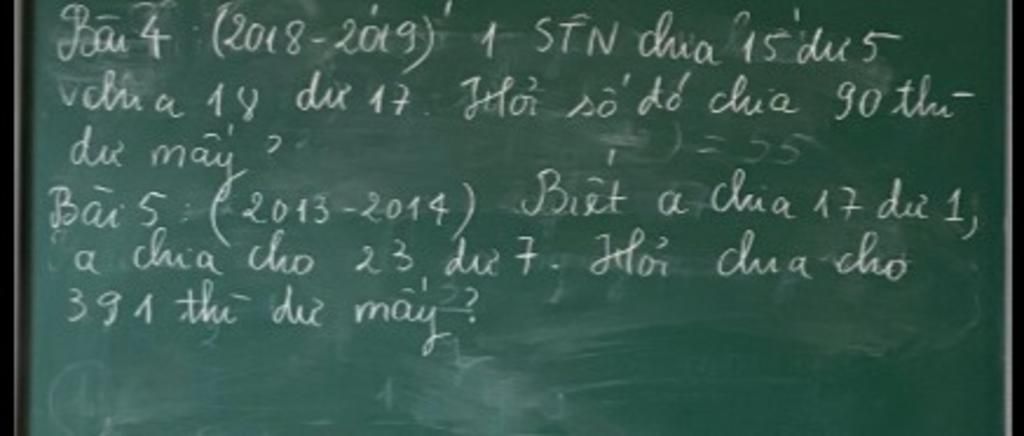 Bài 4 (2018-2019) 1 STN chia 15 dư 5
chia 18 dư 17. Hỏi số đó chia 90 thì
dư mấy?
Bài 5: (2013-2014) Biết a chia 17 dư 1,
a chia cho 23 dư 7. Hỏi chia cho
391 thì dư mấy?